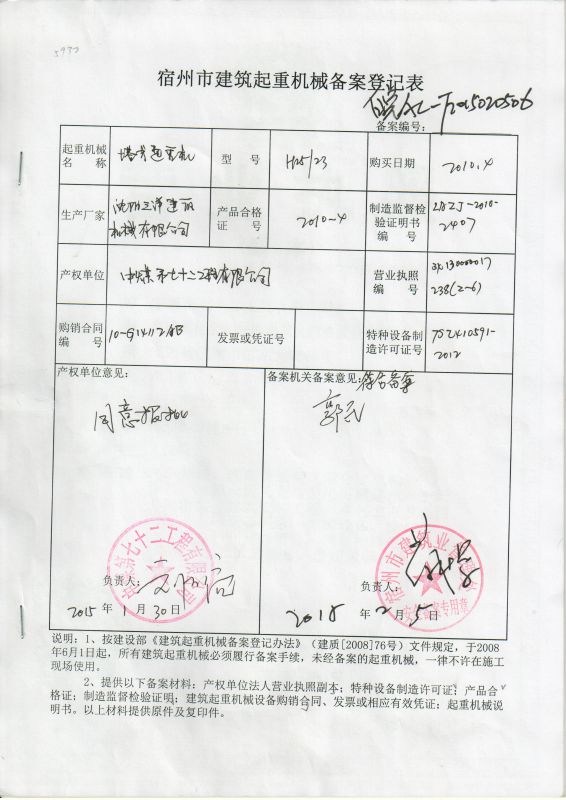 5970
宿州市建筑起重机械备案登记表
备案编号：
起重机械
名　称
塔式起重机
型　号
H25/23
购买日期
2010.4
生产厂家
沈阳三洋建筑
机械有限公司
产品合格
证　号
2010-4
制造监督检
验证明书
编　号
2407
产权单位
中煤第七十二工程有限公司
营业执照
编　号
238(2-6)
购销合同
编　号
发票或凭证号
特种设备制
造许可证号
TS2410591-
2012
产权单位意见：
备案机关备案意见：符合备案
同意
郭
负责人：
2015 年 1 月 30 日
宿州市建筑业管
安全备案专用章
负责人：
2015 年 2 月 5 日
说明：1、按建设部《建筑起重机械备案登记办法》（建质[2008]76号）文件规定，于2008
年6月1日起，所有建筑起重机械必须履行备案手续，未经备案的起重机械，一律不许在施工
现场使用。
2、提供以下备案材料：产权单位法人营业执照副本；特种设备制造许可证；产品合
格证；制造监督检验证明；建筑起重机械设备购销合同、发票或相应有效凭证；起重机械说
明书。以上材料提供原件及复印件。